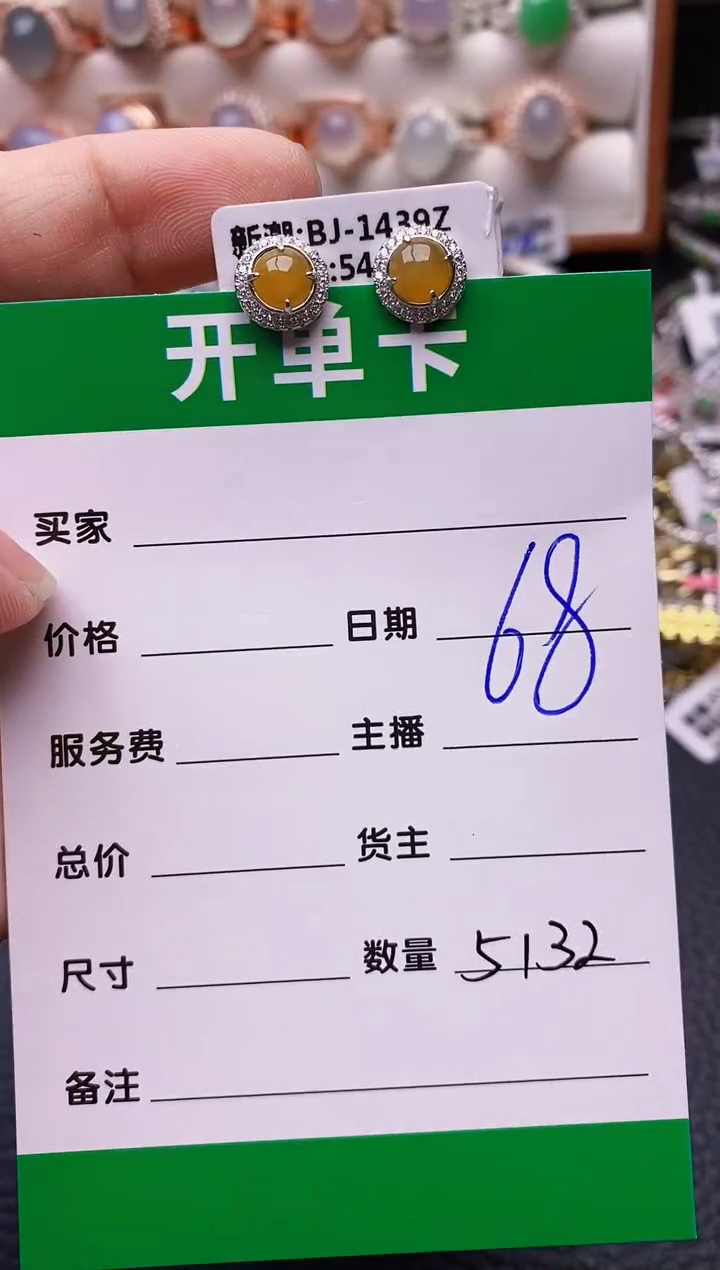 新潮:BJ-1439Z
:54
开单卡
买家
价格 日期 68
服务费 主播
总价 货主
尺寸 数量 5132
备注